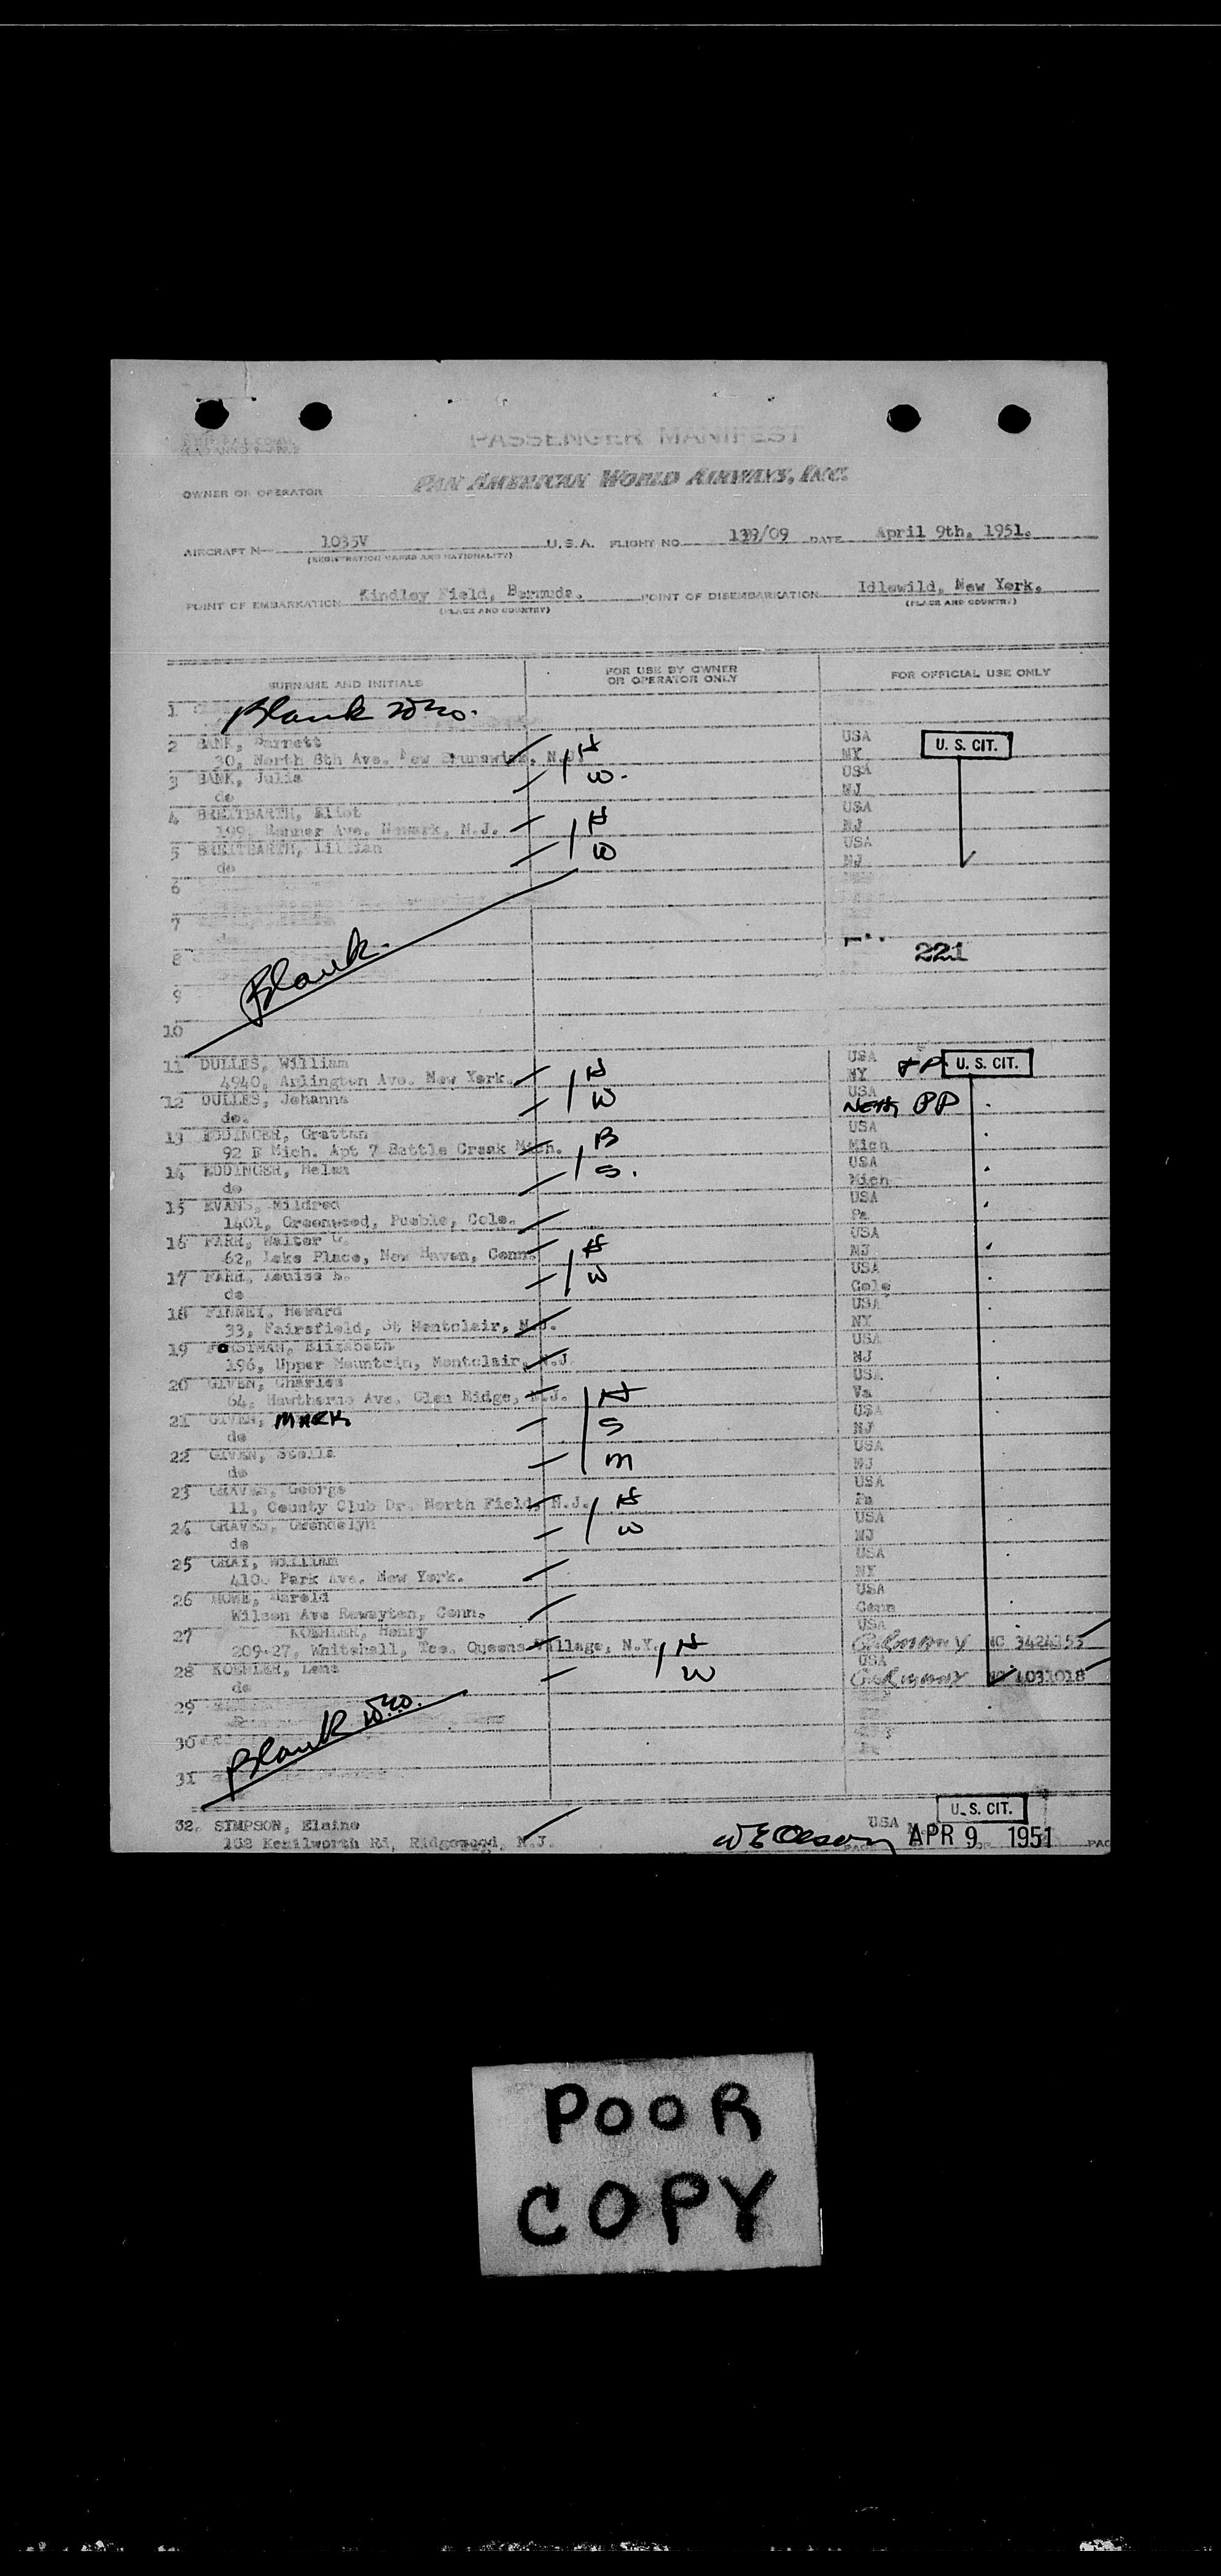 PASSENGER MANIFEST
PAN AMERICAN WORLD AIRWAYS, INC.
OWNER OR OPERATOR
AIRCRAFT N— 1035V U.S.A. FLIGHT NO 139/09 DATE April 9th, 1951.
(REGISTRATION MARKS AND NATIONALITY)
POINT OF EMBARKATION Kindley Field, Bermuda. POINT OF DISEMBARKATION Idlewild, New York.
(PLACE AND COUNTRY) (PLACE AND COUNTRY)
SURNAME AND INITIALS FOR USE BY OWNER OR OPERATOR ONLY FOR OFFICIAL USE ONLY
1 Blank
2 BANK, Barnett H USA U. S. CIT.
30, North 8th Ave. New Brunswick, N.J. NY
3 BANK, Julia W. USA
do NJ
4 BREITBARTH, Eliot H USA
199, Renner Ave. Newark, N.J. NJ
5 BREITBARTH, Lillian W USA
do NJ
6
7
8 221
Blank.
9
10
11 DULLES, William H USA PP U. S. CIT.
4940, Arlington Ave. New York. NY
12 DULLES, Johanna W USA
do. Neth PP
13 EDDINGER, Grattan B USA
92 E Mich. Apt 7 Battle Creek Mich. Mich
14 EDDINGER, Helen S. USA
do Mich
15 EVANS, Mildred USA
1401, Greenwood, Pueblo, Colo. Pa
16 FARR, Walter G. H USA
62, Place, New Haven, Conn. NJ
17 FARR, Louise W USA
do Colo
18 FINNEY, Howard USA
33, Fairsfield, St Montclair, N.J. NY
19 FORSTMAN, Elizabeth USA
196, Upper Mountain, Montclair, N.J. NJ
20 GIVEN, Charles H USA
64, Hawthorne Ave. Glen Ridge, N.J. Va
21 GIVEN, MARK S USA
do NJ
22 GIVEN, Stella M USA
do NJ
23 GRAVES, George H USA
11, County Club Dr. North Field, N.J. Pa
24 GRAVES, Gwendelyn W USA
do NJ
25 GRAY, William USA
410, Park Ave. New York. NY
26 HOWE, Harold USA
Wilson Ave Rowayton, Conn. Conn
27 KOEHLER, Henry USA
209-27, Whitehall, Tce. Queens Village, N.Y. H Germany NC 3424153
28 KOEHLER, Lena W USA
do Germany NC 4031018
29
Blank
30
31
32. SIMPSON, Elaine USA U. S. CIT.
152 Kenilworth Rd, Ridgewood, N.J. W E Olson APR 9 1951
POOR
COPY